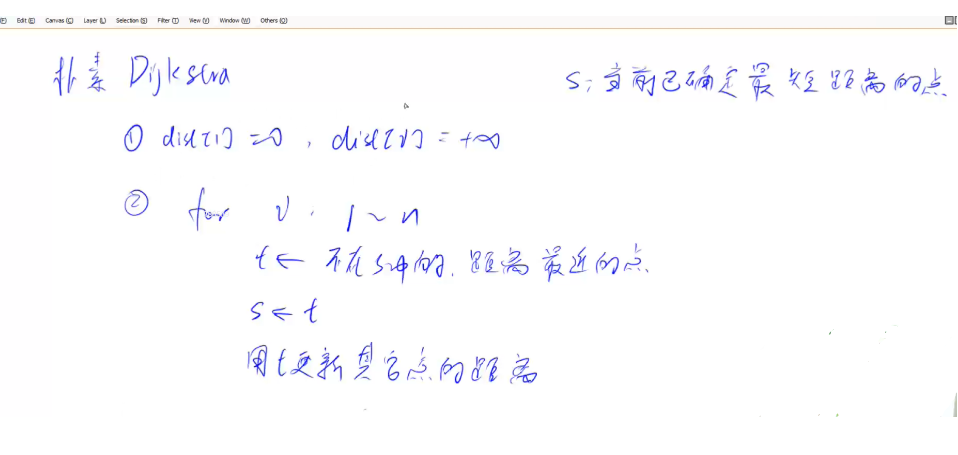 Edit (E) Canvas (C) Layer (L) Selection (S) Filter (T) View (V) Window (W) Others (O)
朴素 Dijkstra
S: 当前已确定最短距离的点
① dist[1] = 0, dist[i] = +∞
② for i: 1 ~ n
t ← 不在S中的, 距离最近的点.
S ← t
用t更新其它点的距离